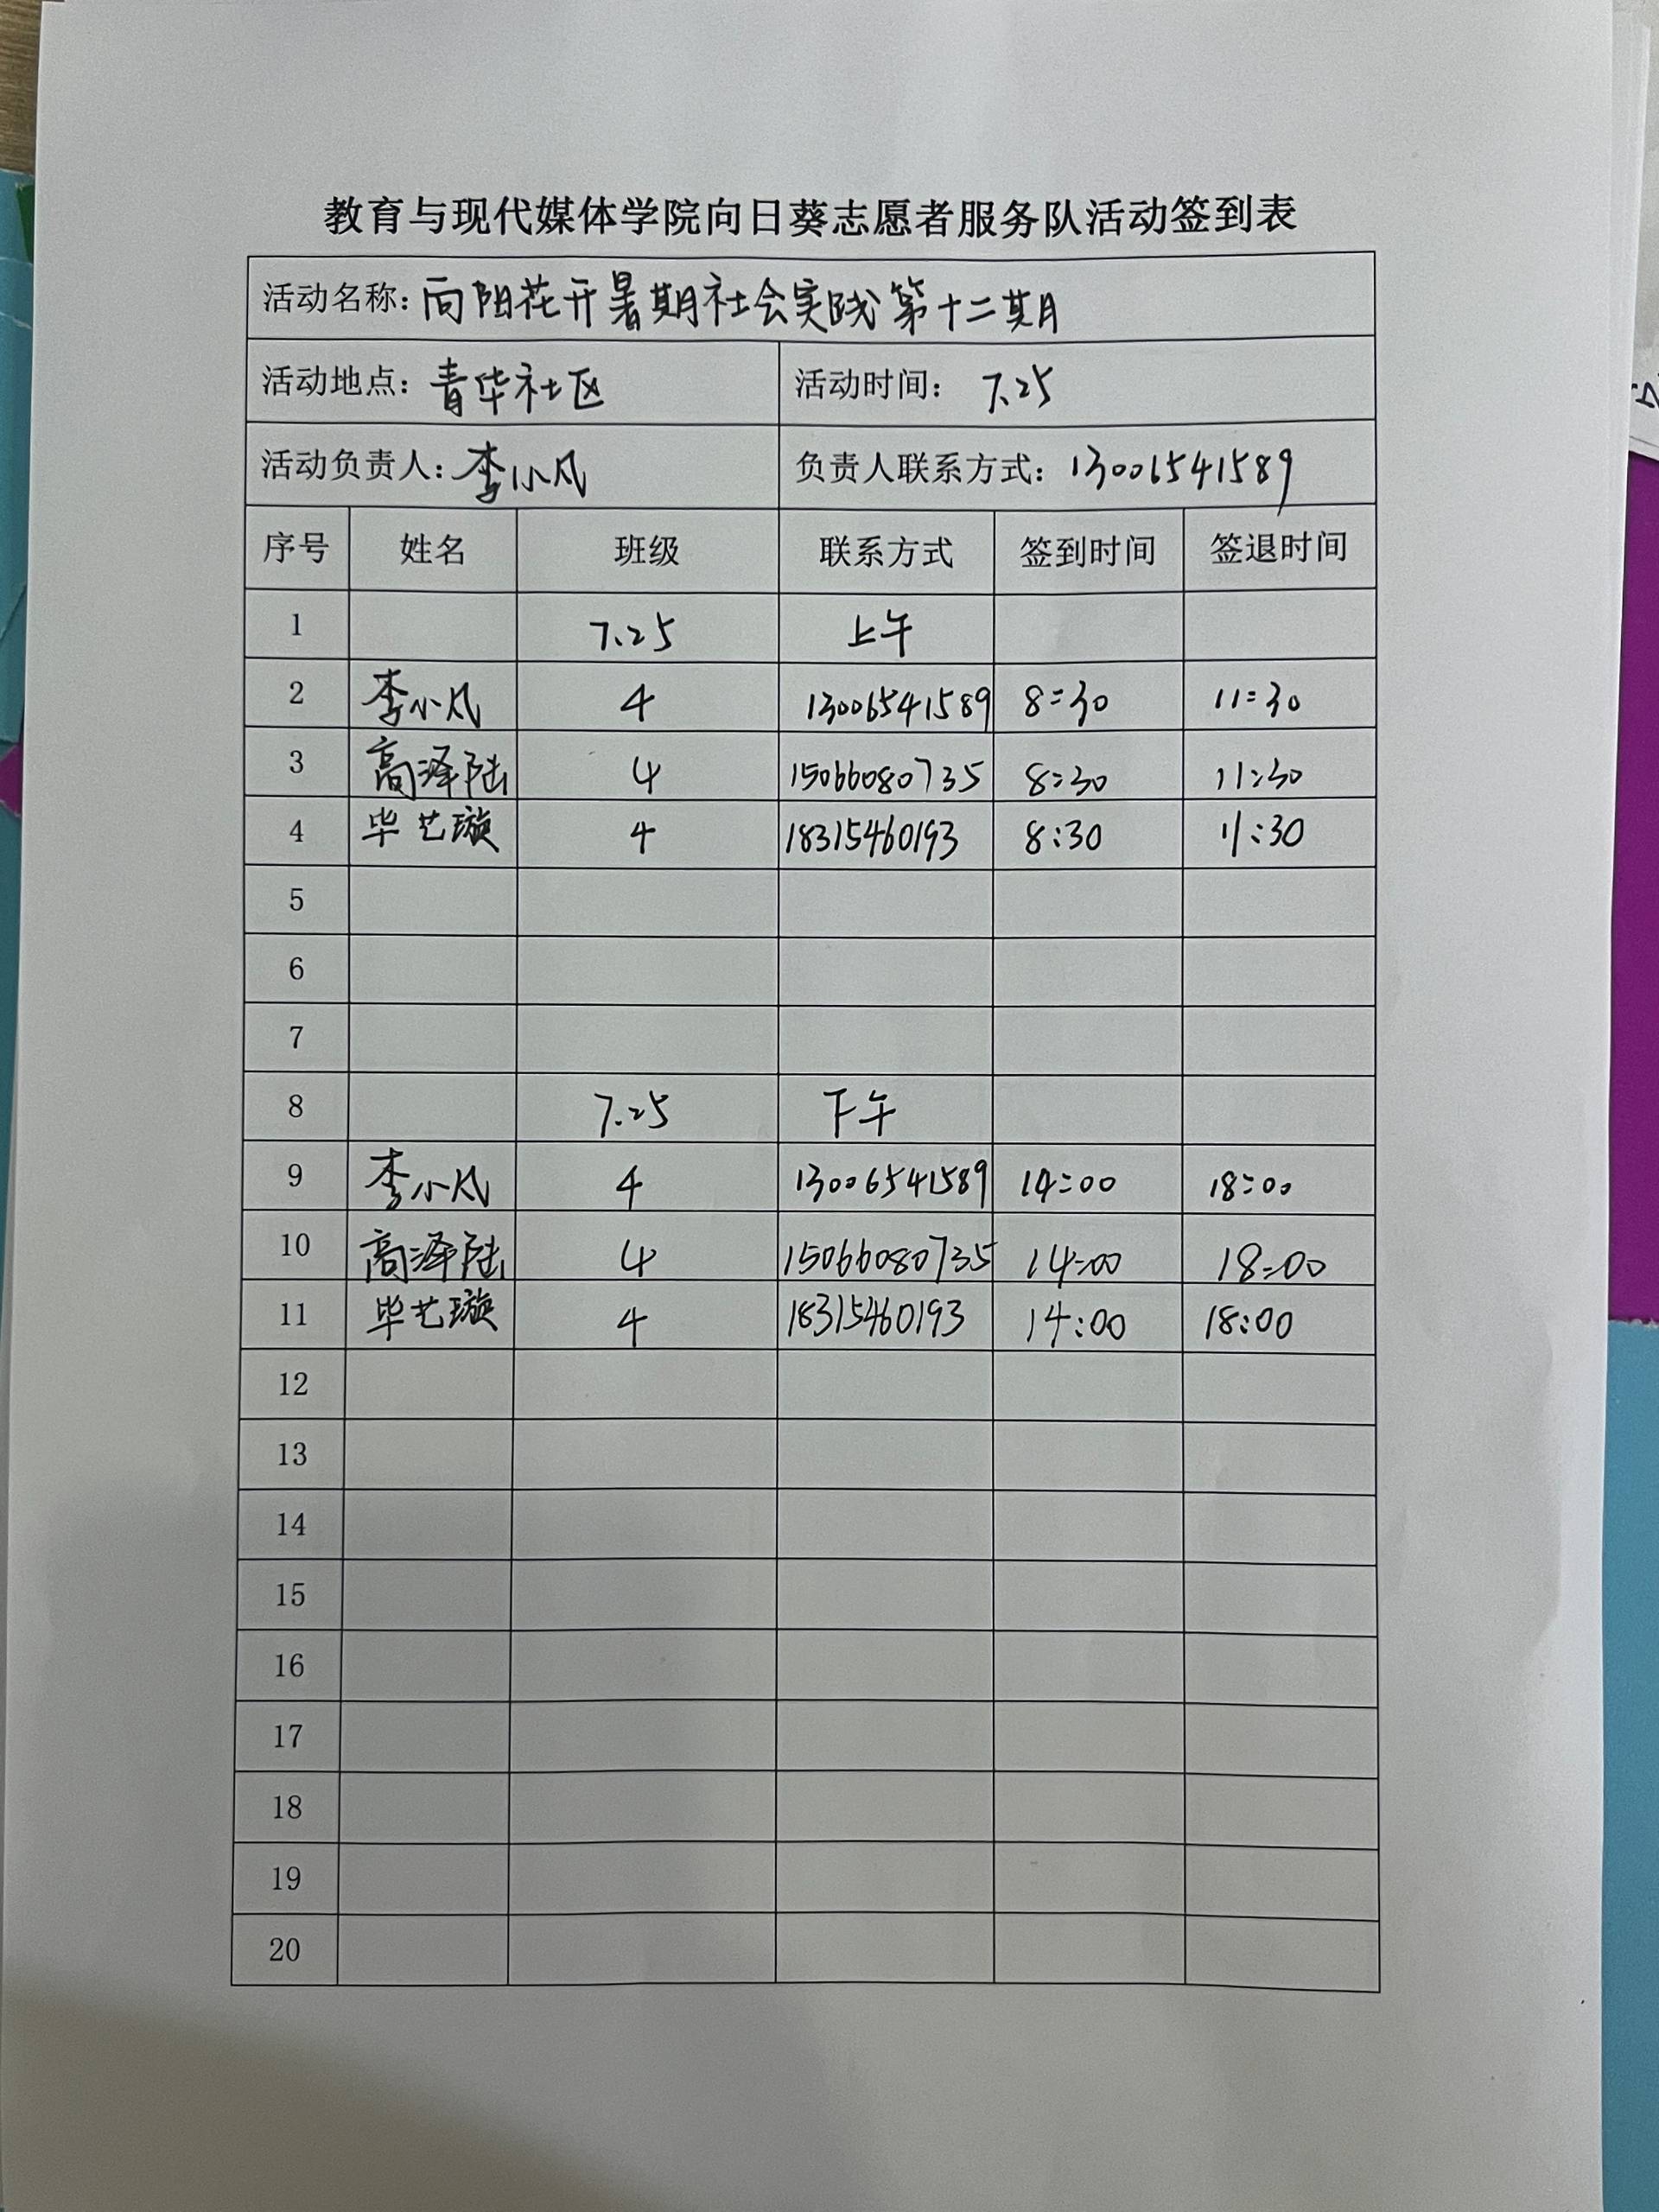 教育与现代媒体学院向日葵志愿者服务队活动签到表
活动名称：向阳花开暑期社会实践第十二期
活动地点：青华社区 活动时间：7.25
活动负责人：李小凡 负责人联系方式：13006541589
序号 姓名 班级 联系方式 签到时间 签退时间
1 7.25 上午
2 李小凡 4 13006541589 8:30 11:30
3 高泽陆 4 15066080735 8:30 11:30
4 毕艺璇 4 18315460193 8:30 11:30
5
6
7
8 7.25 下午
9 李小凡 4 13006541589 14:00 18:00
10 高泽陆 4 15066080735 14:00 18:00
11 毕艺璇 4 18315460193 14:00 18:00
12
13
14
15
16
17
18
19
20